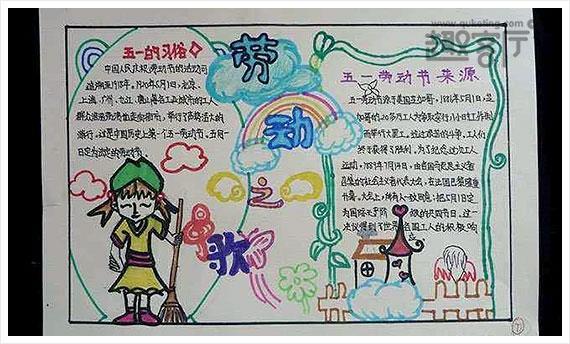 趣客厅
www.quketing.com
劳
动
之
歌
五一的习俗
中国人民庆祝劳动节的活动可
追溯至1918年,1920年5月1日,北京、
上海、广州、九江、唐山等各工业城市的工人
群众浩浩荡荡地走向街市、举行了声势浩大的
游行,这是中国历史上第一个五一劳动节,五月一
日定为法定的劳动节。
五一劳动节来源
五一劳动节源于美国芝加哥,1886年5月1日,芝
加哥的20多万工人为争取实行八小时工作制
而举行大罢工。经过艰苦的斗争,工人们
终于获得了胜利。为了纪念这次工人
运动,1889年7月14日,由各国马克思主义者
召集的社会主义者代表大会,在法国巴黎隆重
开幕。大会上,所有人一致同意:把5月1日定
为国际无产阶级的共同节日,这一
决议得到了世界各国工人的积极响